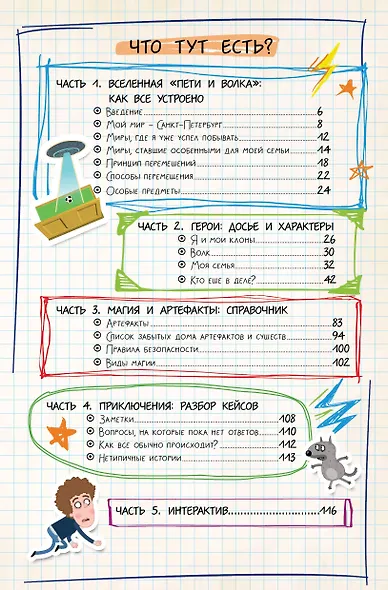 ЧТО ТУТ ЕСТЬ?
ЧАСТЬ 1. ВСЕЛЕННАЯ «ПЕТИ И ВОЛКА»:
КАК ВСЕ УСТРОЕНО
Введение 6
Мой мир – Санкт-Петербург 8
Миры, где я уже успел побывать 12
Миры, ставшие особенными для моей семьи 14
Принцип перемещений 18
Способы перемещения 22
Особые предметы 24
ЧАСТЬ 2. ГЕРОИ: ДОСЬЕ И ХАРАКТЕРЫ
Я и мои клоны 26
Волк 30
Моя семья 32
Кто еще в деле? 42
ЧАСТЬ 3. МАГИЯ И АРТЕФАКТЫ: СПРАВОЧНИК
Артефакты 83
Список забытых дома артефактов и существ 94
Правила безопасности 100
Виды магии 102
ЧАСТЬ 4. ПРИКЛЮЧЕНИЯ: РАЗБОР КЕЙСОВ
Заметки 108
Вопросы, на которые пока нет ответов 110
Как все обычно происходит? 112
Нетипичные истории 113
ЧАСТЬ 5. ИНТЕРАКТИВ 116